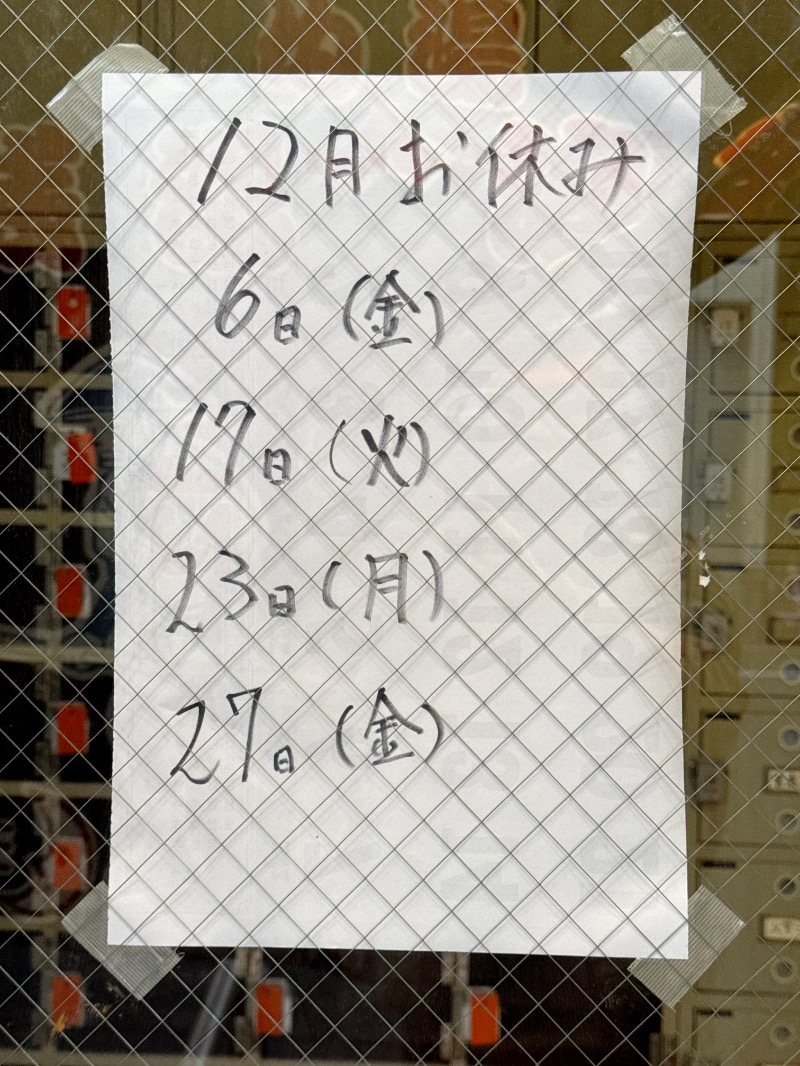 12月お休み
6日(金)
17日(火)
23日(月)
27日(金)